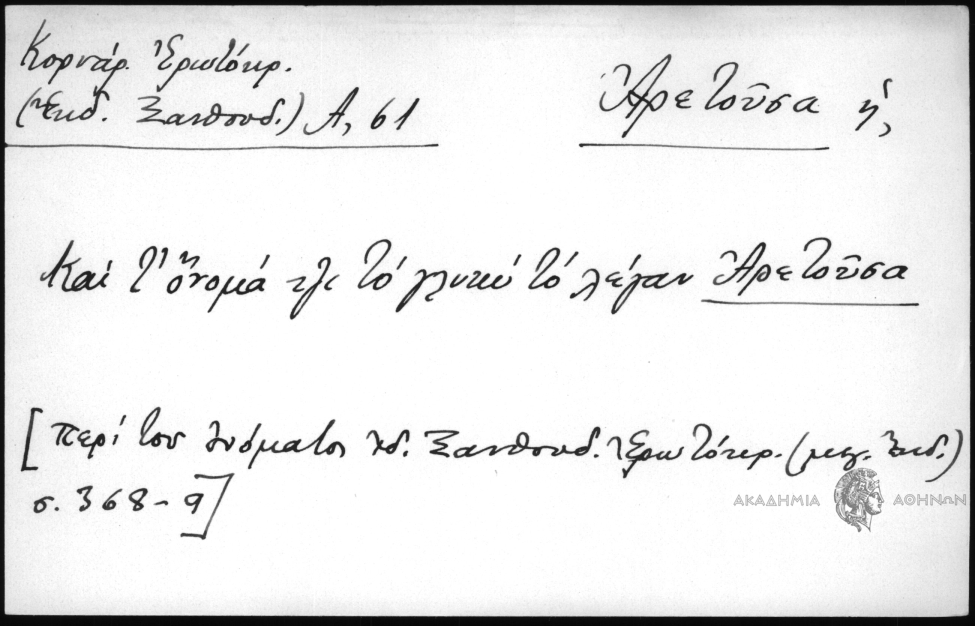 Κορνάρ. Ἐρωτόκρ.
(Ἔκδ. Ξανθουδ.) Α, 61
Ἀρετοῦσα ἡ,
Καί τ' ὄνομά τζι τό γλυκύ τό λέγαν Ἀρετοῦσα
[περί τοῦ ὀνόματος ἰδ. Ξανθουδ. Ἐρωτόκρ. (μεγ. Ἔκδ.)
σ. 368-9]
ΑΚΑΔΗΜΙΑ ΑΘΗΝΩΝ